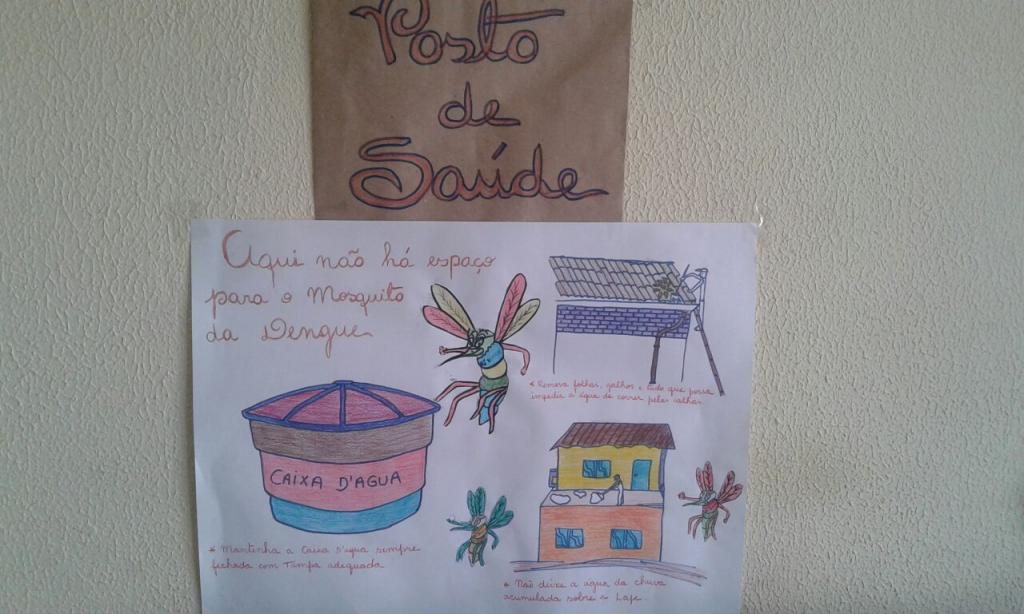 Posto
de
Saúde
Aqui não há espaço
para o Mosquito
da Dengue
* Remova folhas, galhos e tudo que possa
impedir a água de correr pelas calhas.
CAIXA D'AGUA
* Mantenha a Caixa D'agua sempre
fechada com Tampa adequada
* Não deixe a água da chuva
acumulada sobre a Laje.